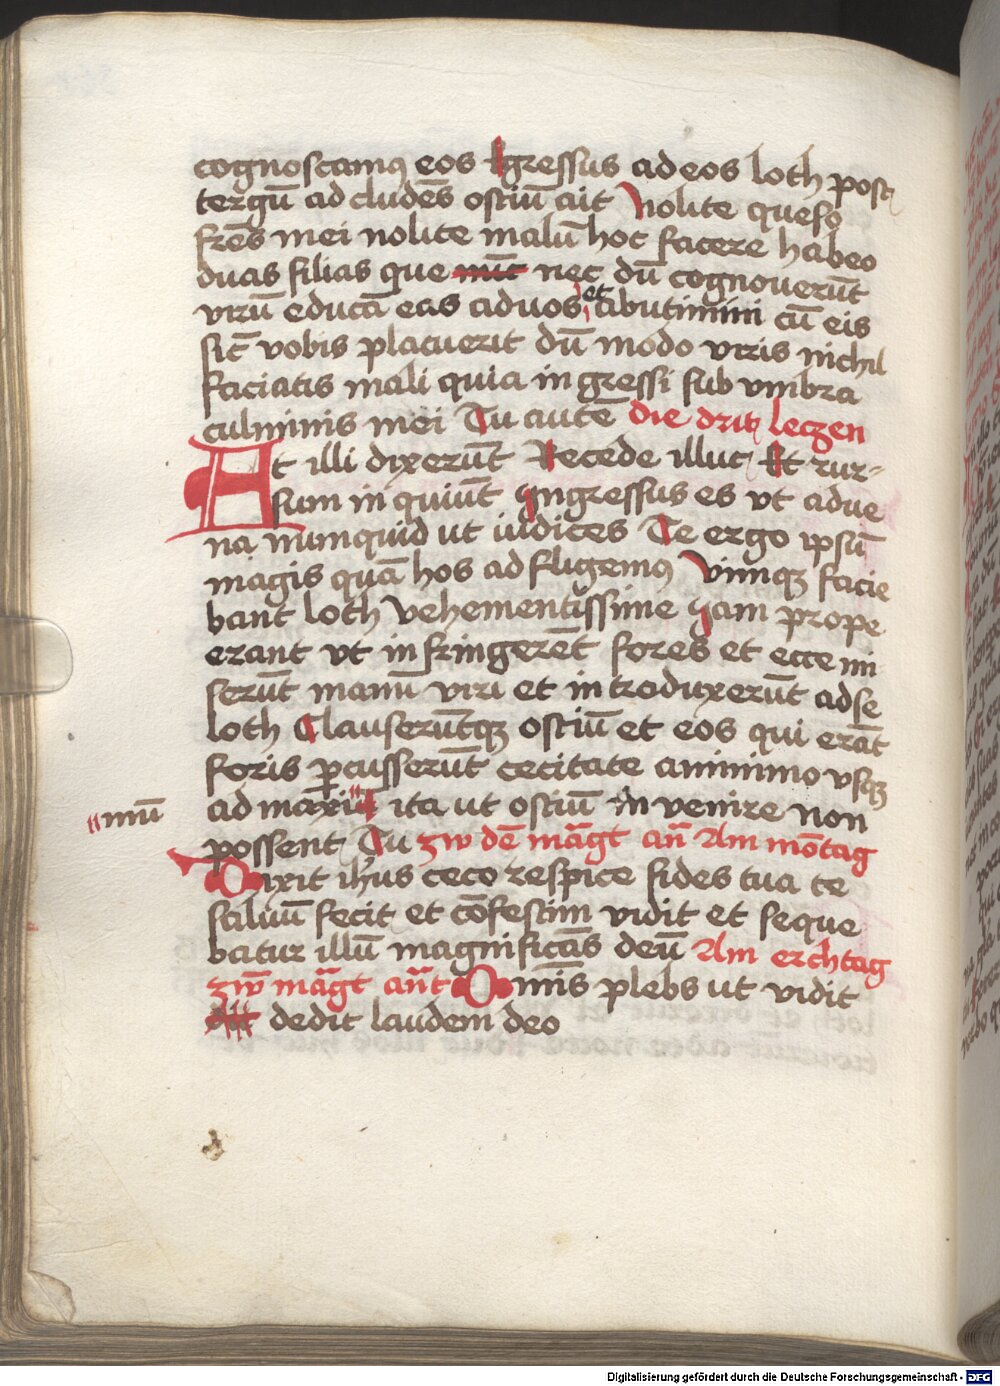 cognoscamꝰ eos Egressus ad eos loth post
tergū ad cludēs ostiū ait Nolite queso
fr̄es mei nolite malū hoc facere habeo
duas filias que nūc nec dū cognouerūt
virū educā eas aduos et abutimini cū eis
sic̄ vobis placuerit dū modo viris nichil
faciatis mali quia in gressi sub vmbra
culminis mei Tu autē die drit leczen
At illi dixerūt Recede illuc Et rur-
sum in quiūt Ingressus es vt adue
na numquid ut iudices Te ergo ipsū
magis quā hos ad fligemꝰ Vimqꝫ facie
bant loth vehementissime Iam prope
erant vt in fringerēt fores et ecce mi
serūt manū viri et in troduxerūt adse
loth Clauserūtqꝫ ostiū et eos qui erāt
foris ꝑcusserūt cecitate aminimo vsqꝫ
ad maxi ita ut ostiū in venire non
mū
possent Tu zw dē māgt an̄ Am mōtag
Dixit ih̄us ceco respice fides tua te
saluū fecit et cōfestim vidit et seque
batur illū magnificās deū Am erchtag
zw̄ māgt an̄t Omīs plebs ut vidit
dedit laudem deo
Digitalisierung gefördert durch die Deutsche Forschungsgemeinschaft - DFG